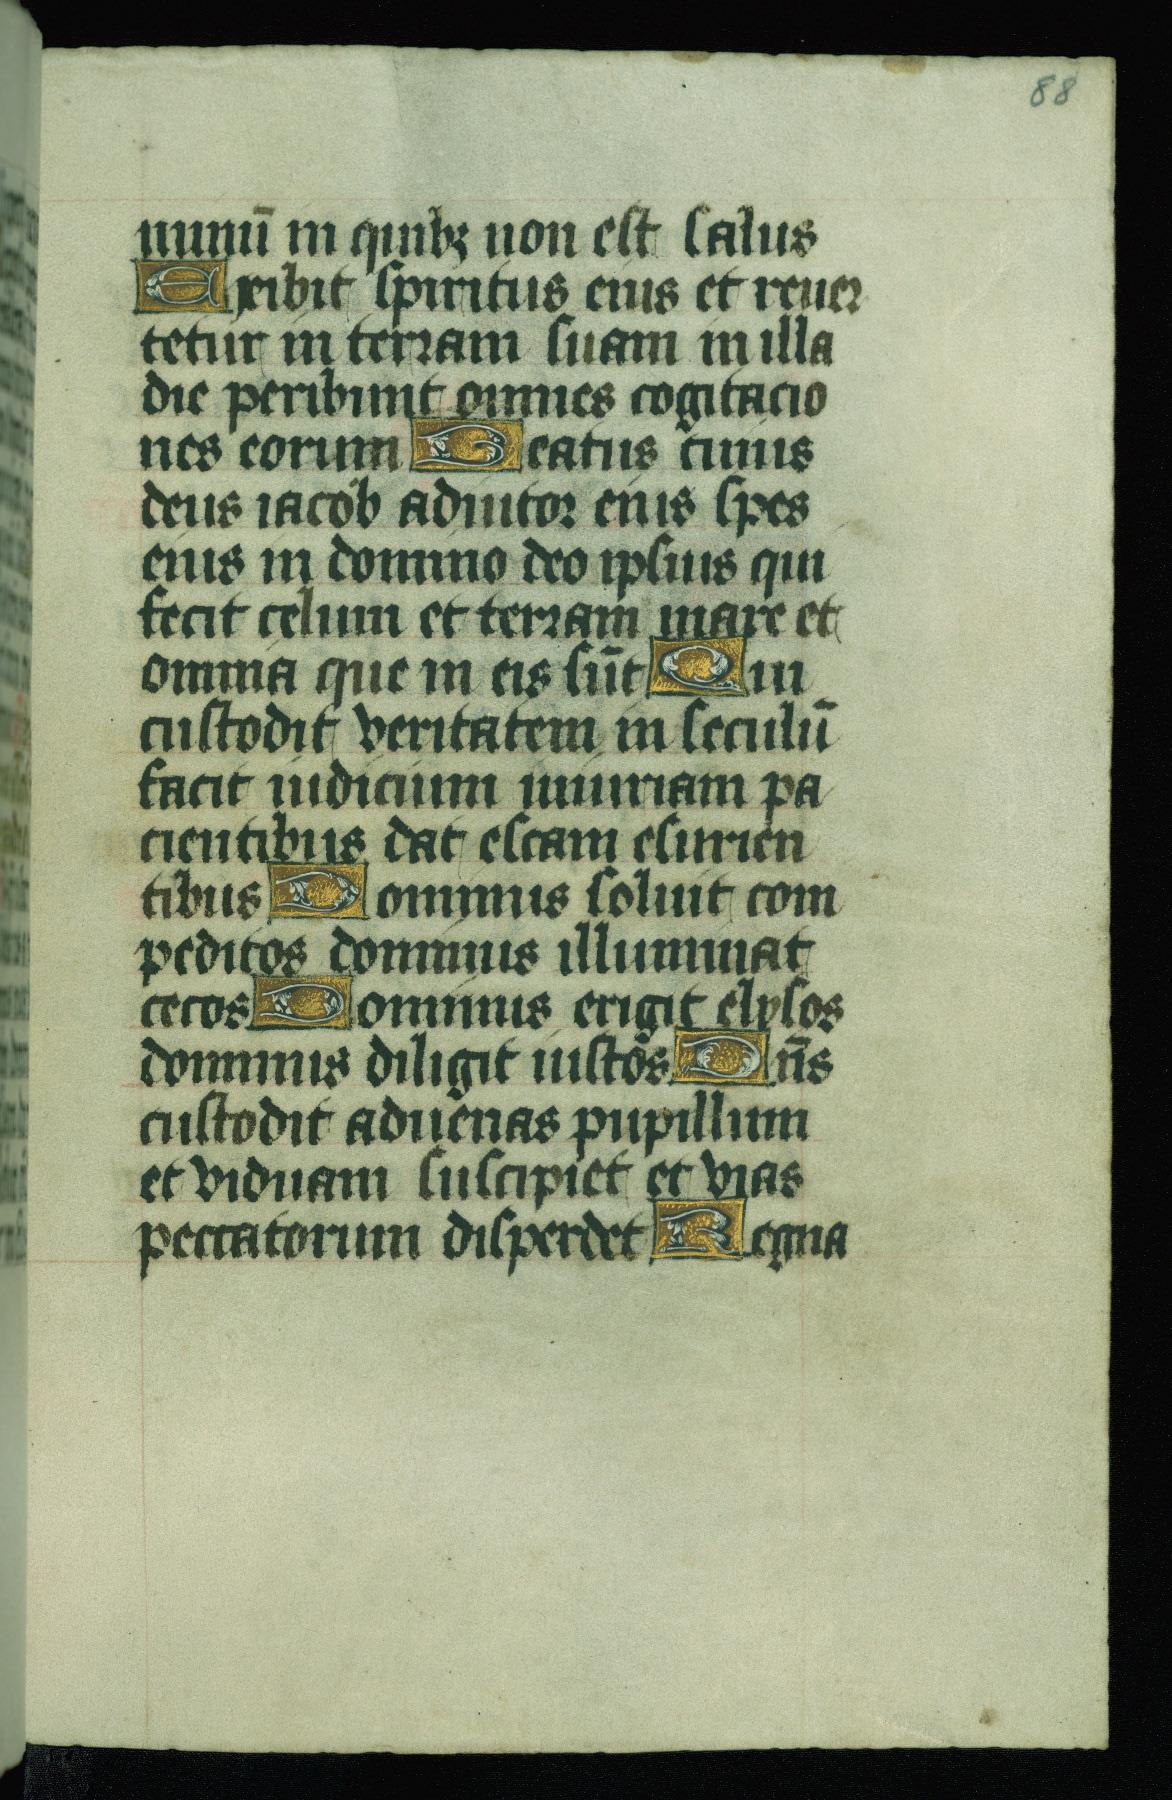 88
minū in quibꝫ non est salus
Exibit spiritus eius et reuer
tetur in terram suam in illa
die peribunt omnes cogitacio
nes eorum Beatus cuius
deus iacob adiutor eius spes
eius in domino deo ipsius qui
fecit celum et terram mare et
omnia que in eis sūt Qui
custodit veritatem in seculū
facit iudicium iniuriam pa
cientibus dat escam esurien
tibus Dominus soluit com
peditos dominus illuminat
cecos Dominus erigit elysos
dominus diligit iustos Dn̄s
custodit aduenas pupillum
et viduam suscipiet et vias
peccatorum disperdet Regna